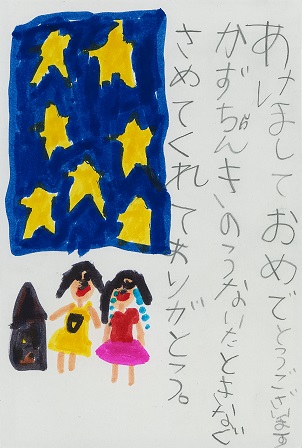 あけまして おめでとうございます
かずちゃんきのうないたときなぐ
さめてくれてありがとう。